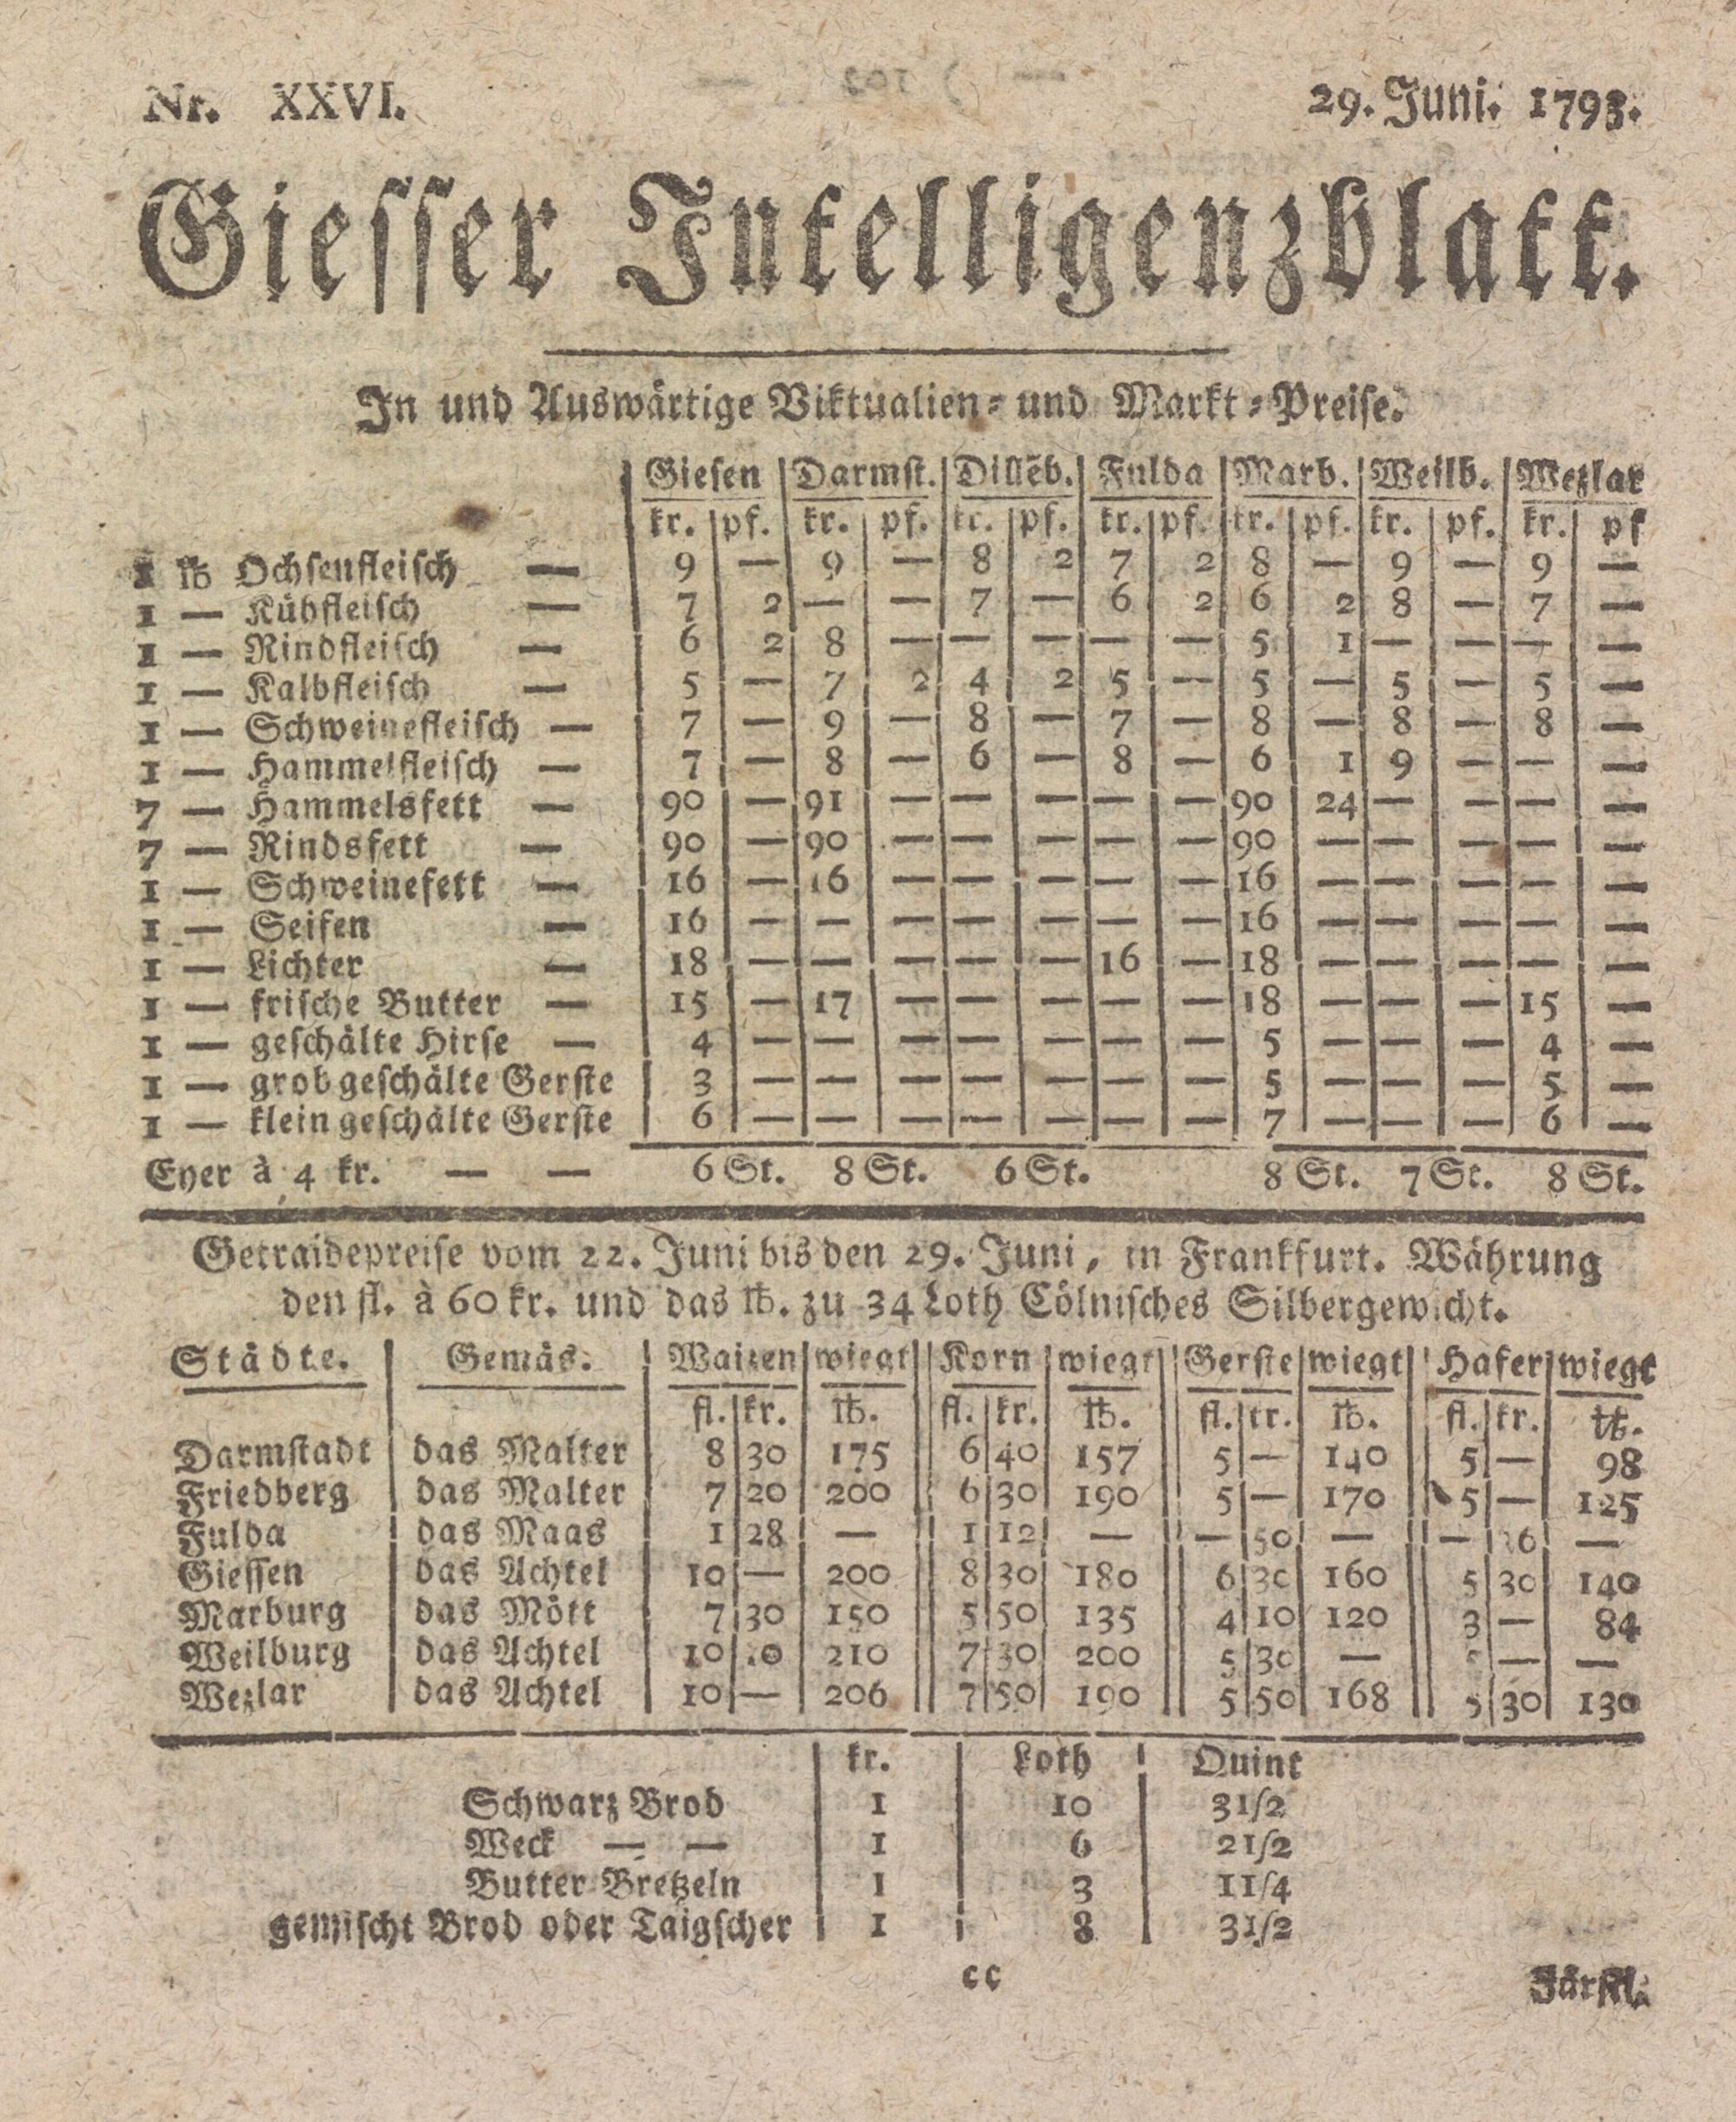 Nr. XXVI. 29. Juni. 1793.
Giesser Intelligenzblatt.
In und Auswärtige Viktualien- und Markt-Preise.
Giesen | Darmst. | Dillēb. | Fulda | Marb. | Weilb. | Wezlar
kr. | pf. | kr. | pf. | kr. | pf. | kr. | pf. | kr. | pf. | kr. | pf. | kr. | pf
1 ℔ Ochsenfleisch — 9 | — | 9 | — | 8 | 2 | 7 | 2 | 8 | — | 9 | — | 9 | —
1 — Kühfleisch — 7 | 2 | — | — | 7 | — | 6 | 2 | 6 | 2 | 8 | — | 7 | —
1 — Rindfleisch — 6 | 2 | 8 | — | — | — | — | — | 5 | 1 | — | — | — | —
1 — Kalbfleisch — 5 | — | 7 | 2 | 4 | 2 | 5 | — | 5 | — | 5 | — | 5 | —
1 — Schweinefleisch — 7 | — | 9 | — | 8 | — | 7 | — | 8 | — | 8 | — | 8 | —
1 — Hammelfleisch — 7 | — | 8 | — | 6 | — | 8 | — | 6 | 1 | 9 | — | — | —
7 — Hammelsfett — 90 | — | 91 | — | — | — | — | — | 90 | 24 | — | — | — | —
7 — Rindsfett — 90 | — | 90 | — | — | — | — | — | 90 | — | — | — | — | —
1 — Schweinefett — 16 | — | 16 | — | — | — | — | — | 16 | — | — | — | — | —
1 — Seifen — 16 | — | — | — | — | — | — | — | 16 | — | — | — | — | —
1 — Lichter — 18 | — | — | — | — | — | 16 | — | 18 | — | — | — | — | —
1 — frische Butter — 15 | — | 17 | — | — | — | — | — | 18 | — | — | — | 15 | —
1 — geschälte Hirse — 4 | — | — | — | — | — | — | — | 5 | — | — | — | 4 | —
1 — grob geschälte Gerste 3 | — | — | — | — | — | — | — | 5 | — | — | — | 5 | —
1 — klein geschälte Gerste 6 | — | — | — | — | — | — | — | 7 | — | — | — | 6 | —
Eyer à 4 kr. — — 6 St. 8 St. 6 St. 8 St. 7 St. 8 St.
Getraidepreise vom 22. Juni bis den 29. Juni, in Frankfurt. Währung
den fl. à 60 kr. und das ℔. zu 34 Loth Cölnisches Silbergewicht.
Städte. | Gemäs. | Waizen | wiegt | Korn | wiegt | Gerste | wiegt | Hafer | wiegt
fl. | kr. | ℔. | fl. | kr. | ℔. | fl. | kr. | ℔. | fl. | kr. | ℔.
Darmstadt | das Malter | 8 | 30 | 175 | 6 | 40 | 157 | 5 | — | 140 | 5 | — | 98
Friedberg | das Malter | 7 | 20 | 200 | 6 | 30 | 190 | 5 | — | 170 | 5 | — | 125
Fulda | das Maas | 1 | 28 | — | 1 | 12 | — | — | 50 | — | — | | —
Giessen | das Achtel | 10 | — | 200 | 8 | 30 | 180 | 6 | 30 | 160 | 5 | 30 | 140
Marburg | das Mött | 7 | 30 | 150 | 5 | 50 | 135 | 4 | 10 | 120 | 3 | — | 84
Weilburg | das Achtel | 10 | | 210 | 7 | 30 | 200 | 5 | 30 | — | | — | —
Wezlar | das Achtel | 10 | — | 206 | 7 | 50 | 190 | 5 | 50 | 168 | 5 | 30 | 130
kr. | Loth | Quint
Schwarz Brod | 1 | 10 | 31/2
Weck — — | 1 | 6 | 21/2
Butter Bretzeln | 1 | 3 | 11/4
gemischt Brod oder Taigscher | 1 | 8 | 31/2
cc